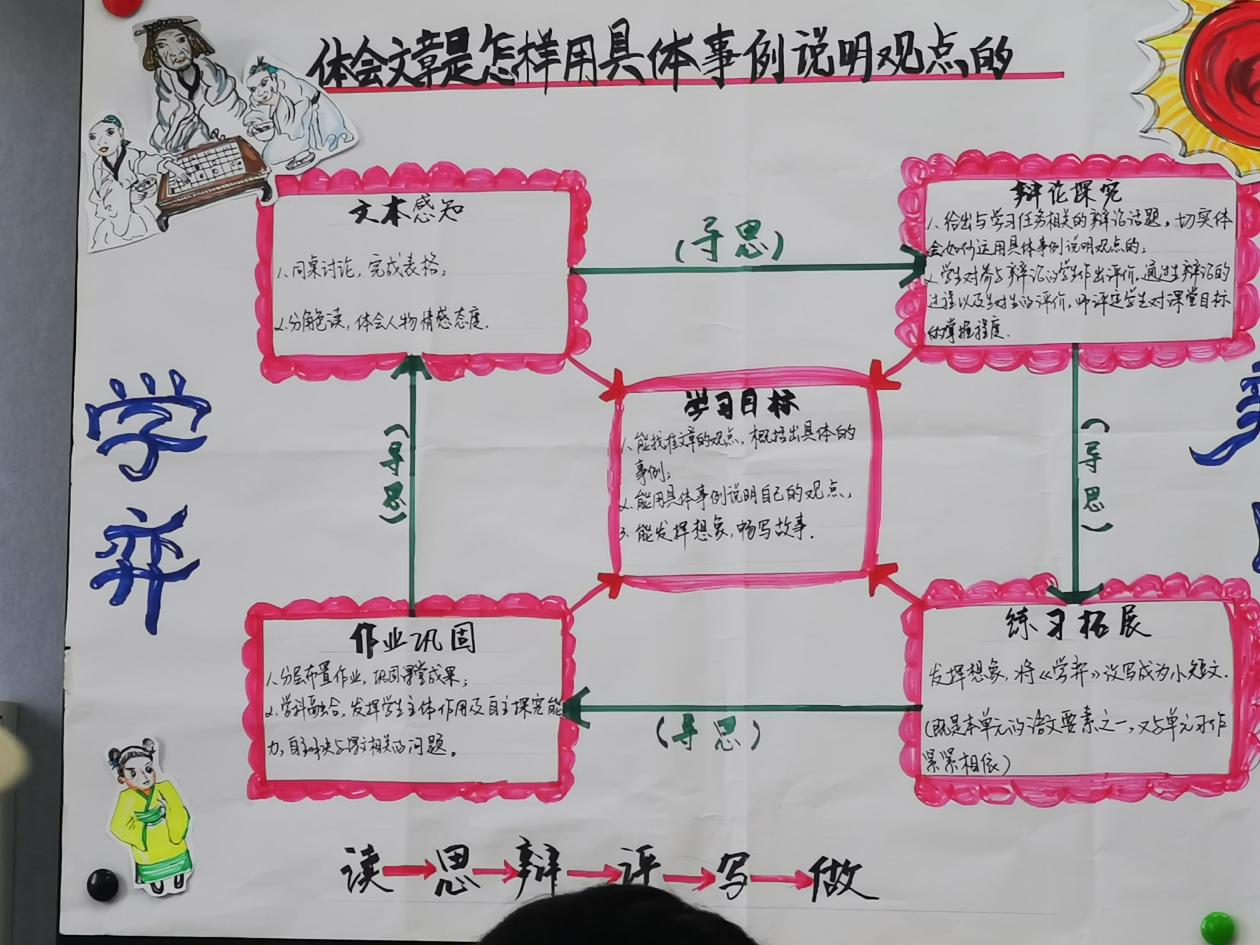 体会文章是怎样用具体事例说明观点的
学弈
文本感知
1、同桌讨论，完成表格；
2、分角色读，体会人物情感态度.
(导思)
辩论探究
1、给出与学习任务相关的辩论话题，切实体
会如何运用具体事例说明观点的；
2、学生对参与辩论的学生作出评价，通过生辩论的
过程以及生对生的评价，师评定学生对课堂目标
的掌握程度.
(导思)
学习目标
1、能找准文章的观点，概括出具体的
事例；
2、能用具体事例说明自己的观点；
3、能发挥想象，畅写故事.
(导思)
作业巩固
1、分层布置作业，巩固课堂成果；
2、学科融合，发挥学生主体作用及自主探究能
力，自主解决与课文相关的问题。
(导思)
练习拓展
发挥想象，将《学弈》改写成为小短文.
(既是本单元的语文要素之一，又与单元习作
紧紧相依)
读→思→辩→评→写→做